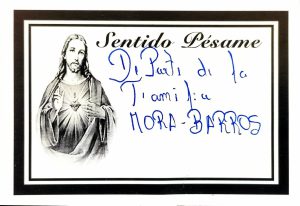 Sentido Pésame
De Parte de la
Familia
MORA-BARROS